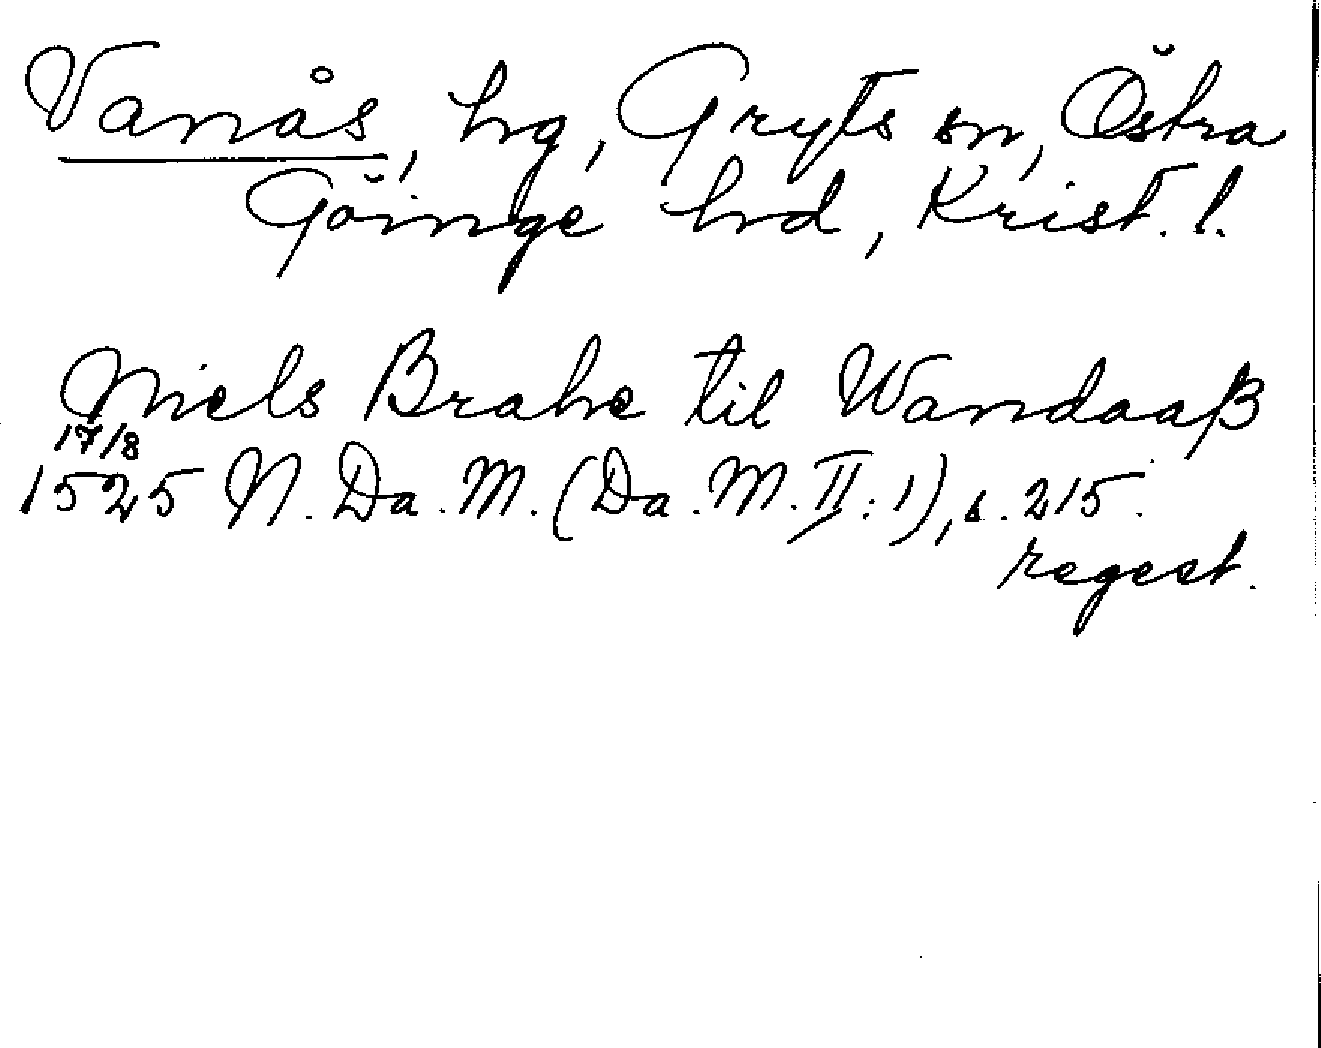 Vanås, hg, Gryts sn, Östra
Göinge hrd, Krist. l.
Niels Brahe til Wandaaß
17/8
1525 N. Da. M. (Da. M. II: 1), s. 215.
regest.